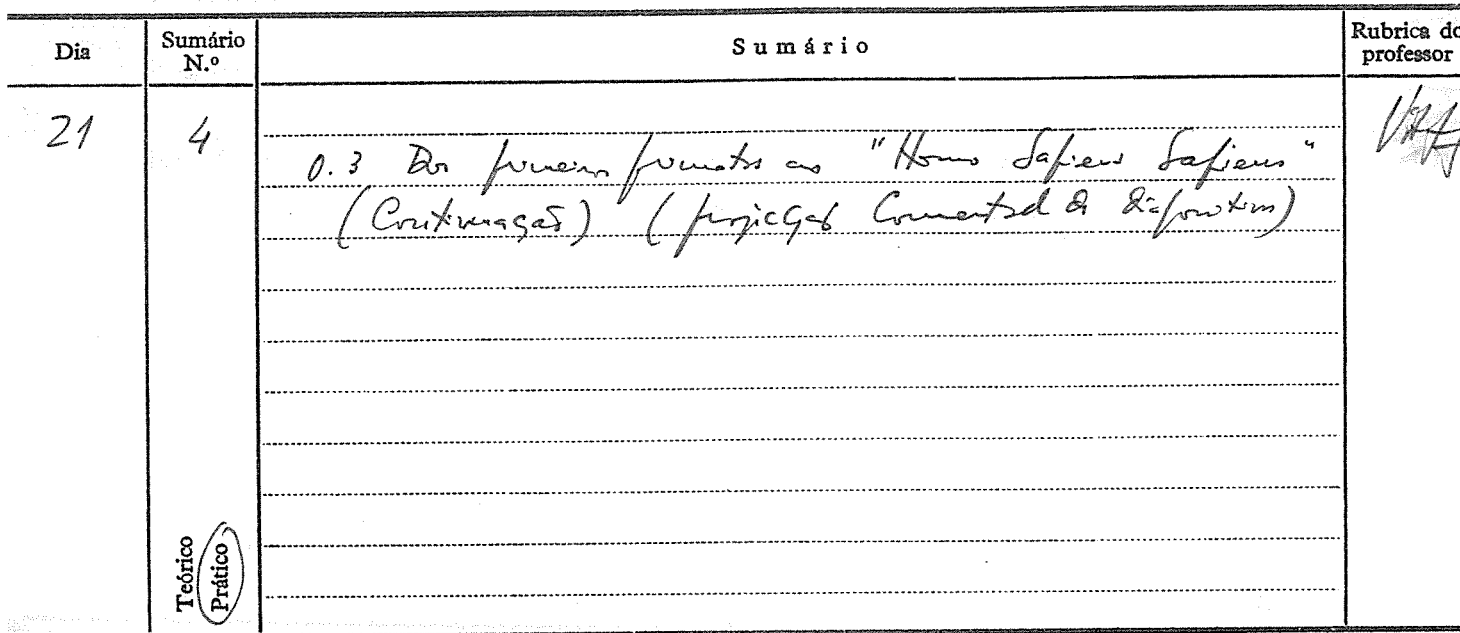 Dia
Sumário N.º
Sumário
Rubrica do professor
21
4
0.3 Dos primeiros primatas ao "Homo Sapiens Sapiens"
(Continuação) (projecção comentada de diapositivos)
Teórico
Prático